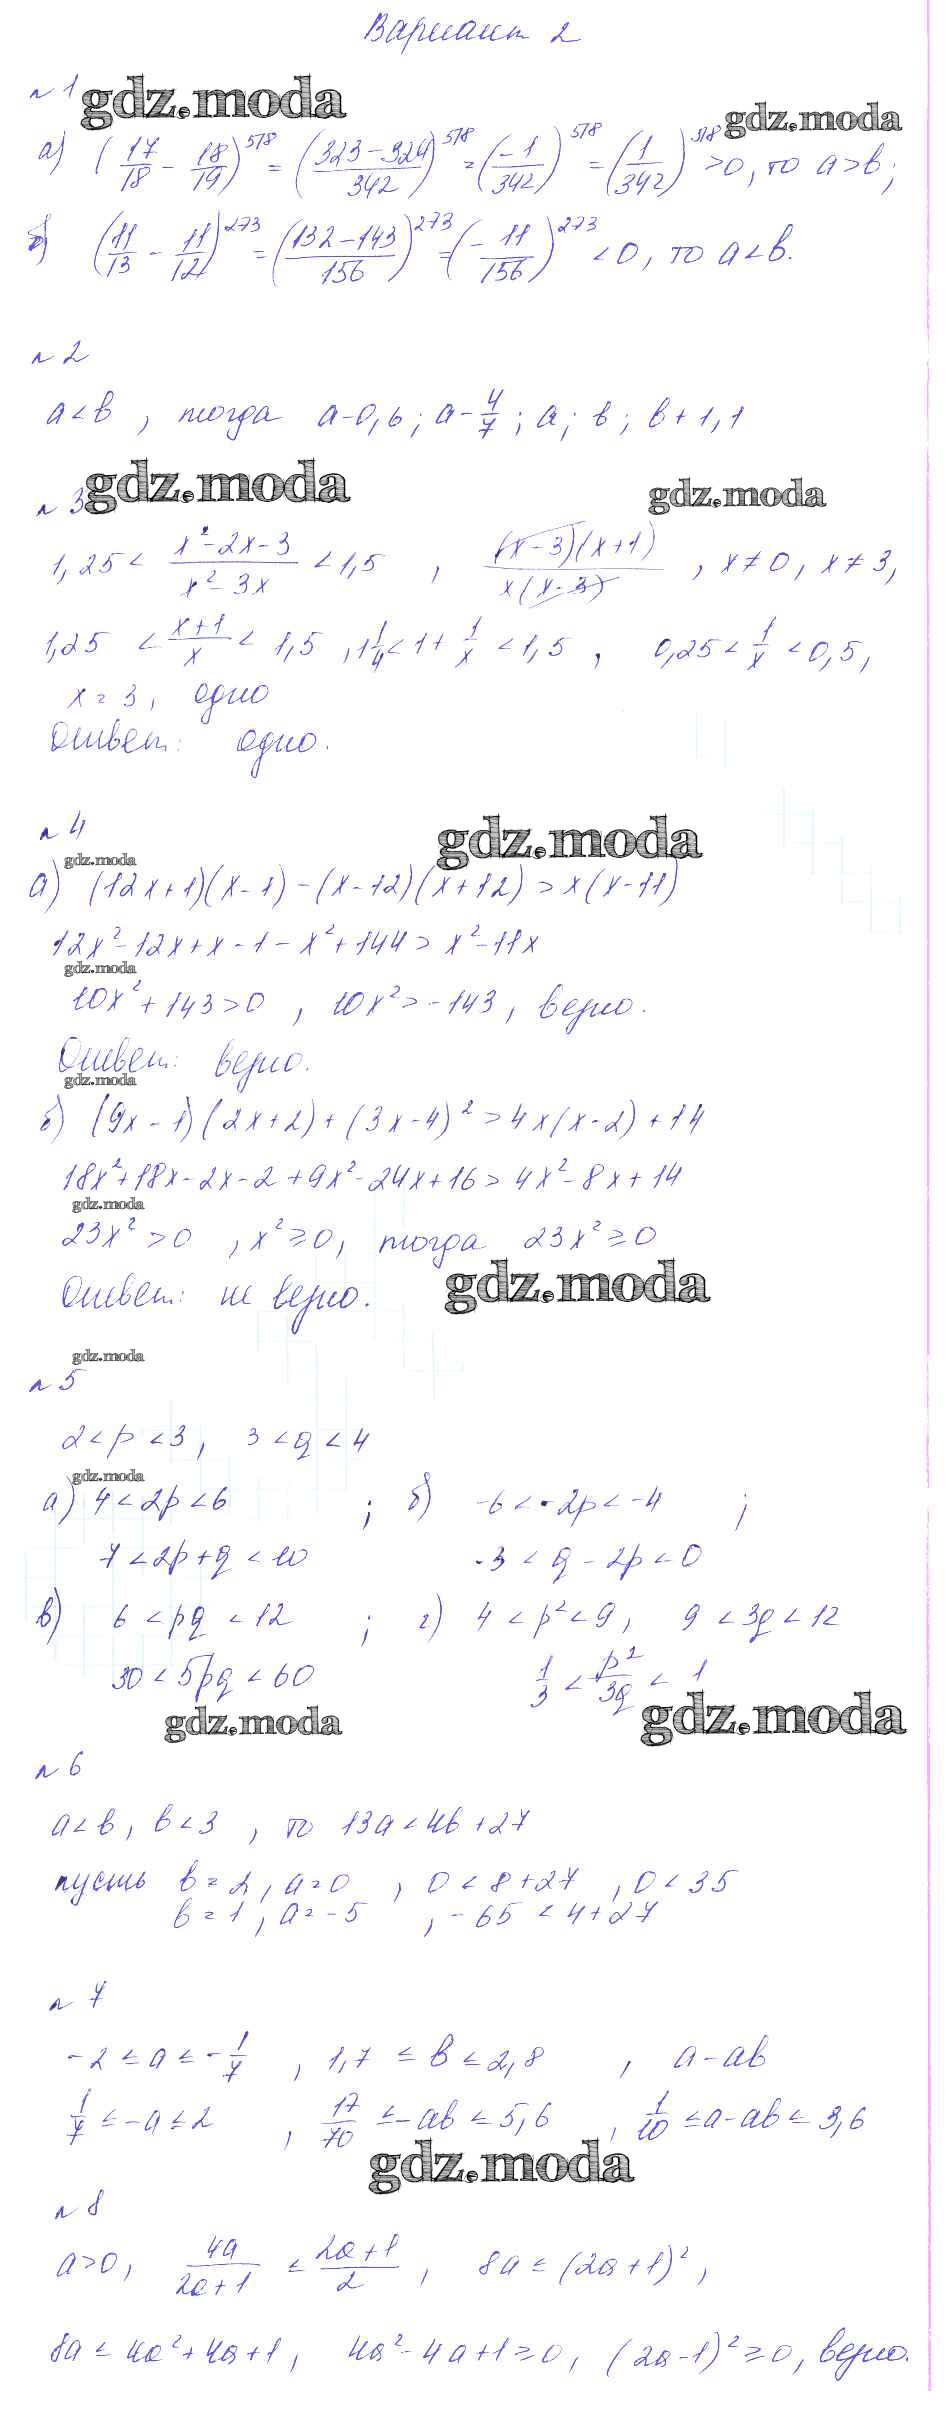 Вариант 2
№1
gdz.moda
gdz.moda
а) (17/18 - 18/19)^578 = (323-324/342)^578 = (-1/342)^578 = (1/342)^578 >0, то a>b;
б) (11/13 - 11/12)^273 = (132-143/156)^273 = (-11/156)^273 <0, то a<b.
№2
a<b, тогда a-0,6; a-4/7; a; b; b+1,1
gdz.moda
gdz.moda
№3
1,25 < x²-2x-3/x²-3x < 1,5, (x-3)(x+1)/x(x-3), x≠0, x≠3,
1,25 < x+1/x < 1,5, 1 1/4 < 1+ 1/x < 1,5, 0,25 < 1/x < 0,5,
x=3, одно
Ответ: одно.
№4
gdz.moda
gdz.moda
а) (12x+1)(x-1)-(x-12)(x+12)>x(x-11)
12x²-12x+x-1-x²+144>x²-11x
gdz.moda
10x²+143>0, 10x²>-143, верно.
Ответ: верно.
gdz.moda
б) (9x-1)(2x+2)+(3x-4)²>4x(x-2)+14
18x²+18x-2x-2+9x²-24x+16>4x²-8x+14
gdz.moda
23x²>0, x²≥0, тогда 23x²≥0
Ответ: не верно.
gdz.moda
gdz.moda
№5
2<p<3, 3<q<4
gdz.moda
а) 4<2p<6; б) -6<-2p<-4;
7<2p+q<10 -3<q-2p<0
в) 6<pq<12; г) 4<p²<9, 9<3q<12
30<5pq<60 1/3 < p²/3q < 1
gdz.moda
gdz.moda
№6
a<b, b<3, то 13a<4b+27
пусть b=2, a=0, 0<8+27, 0<35
b=1, a=-5, -65<4+27
№7
-2≤a≤-1/7, 1,7≤b≤2,8, a-ab
1/7≤-a≤2, 17/70≤-ab≤5,6, 1/10≤a-ab≤3,6
gdz.moda
№8
a>0, 4a/2a+1 ≤ 2a+1/2, 8a≤(2a+1)²,
8a≤4a²+4a+1, 4a²-4a+1≥0, (2a-1)²≥0, верно.